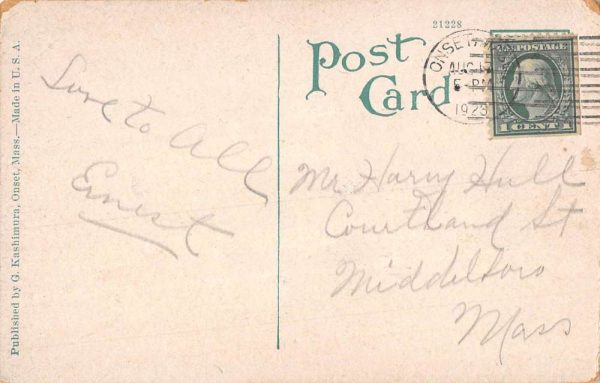 21228
Post
Card
ONSET
AUG 17
5 - PM
1923
U.S. POSTAGE
1 CENT 1
Love to All
Ernest
Mr Harry Hull
Courtland St
Middleboro
Mass
Published by G. Kashimura, Onset, Mass.—Made in U. S. A.